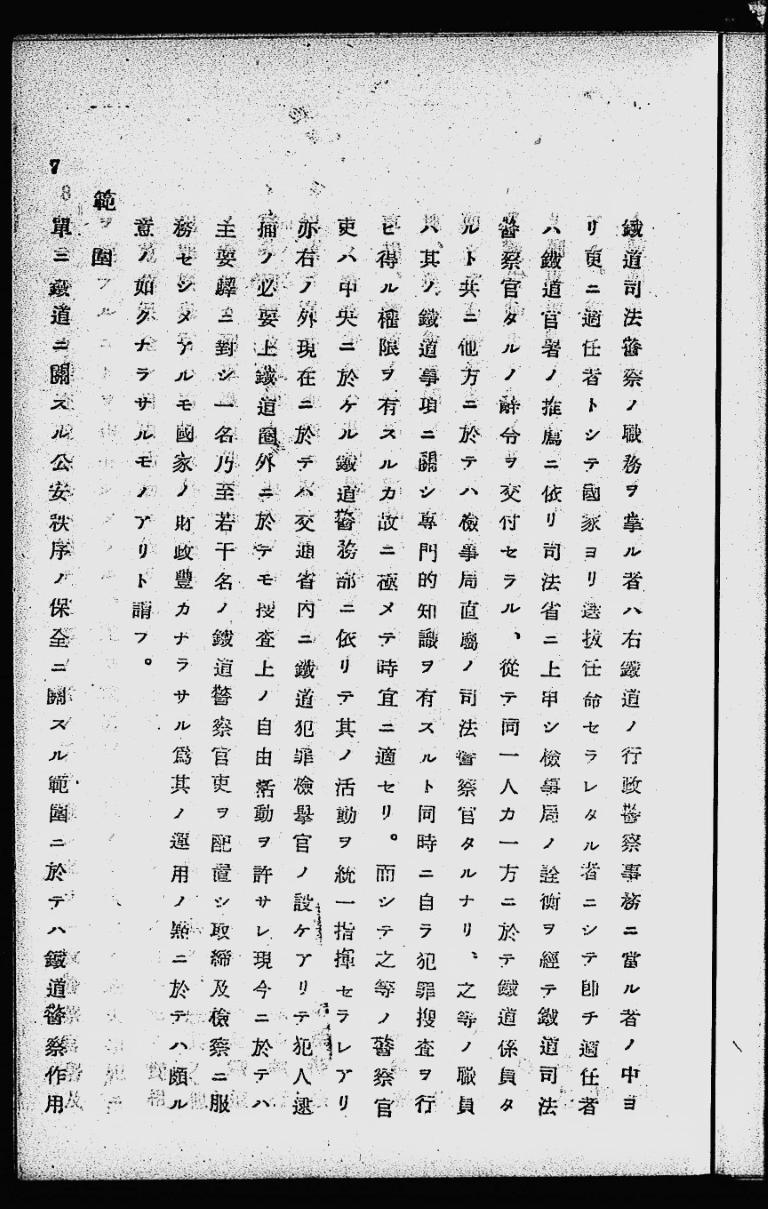 鐵道司法警察ノ職務ヲ掌ル者ハ右鐵道ノ行政警察事務ニ當ル者ノ中ヨ
リ更ニ適任者トシテ國家ヨリ選拔任命セラレタル者ニシテ卽チ適任者
ハ鐵道官署ノ推薦ニ依リ司法省ニ上申シ檢事局ノ詮衡ヲ經テ鐵道司法
警察官タルノ辭令ヲ交付セラル、從テ同一人カ一方ニ於テ鐵道係員タ
ルト共ニ他方ニ於テハ檢事局直屬ノ司法警察官タルナリ、之等ノ職員
ハ其ノ鐵道事項ニ關シ專門的知識ヲ有スルト同時ニ自ラ犯罪搜査ヲ行
ヒ得ル權限ヲ有スルカ故ニ極メテ時宜ニ適セリ。而シテ之等ノ警察官
吏ハ中央ニ於ケル鐵道警務部ニ依リテ其ノ活動ヲ統一指揮セラレアリ
亦右ノ外現在ニ於テハ交通省內ニ鐵道犯罪檢擧官ノ設ケアリテ犯人逮
捕ノ必要上鐵道圈外ニ於テモ搜査上ノ自由活動ヲ許サレ現今ニ於テハ
主要驛ニ對シ一名乃至若干名ノ鐵道警察官吏ヲ配置シ取締及檢察ニ服
務セシメアルモ國家ノ財政豐カナラサル爲其ノ運用ノ點ニ於テハ頗ル
意ノ如クナラサルモノアリト謂フ。
範圍
單ニ鐵道ニ關スル公安秩序ノ保全ニ關スル範圍ニ於テハ鐵道警察作用
7
8